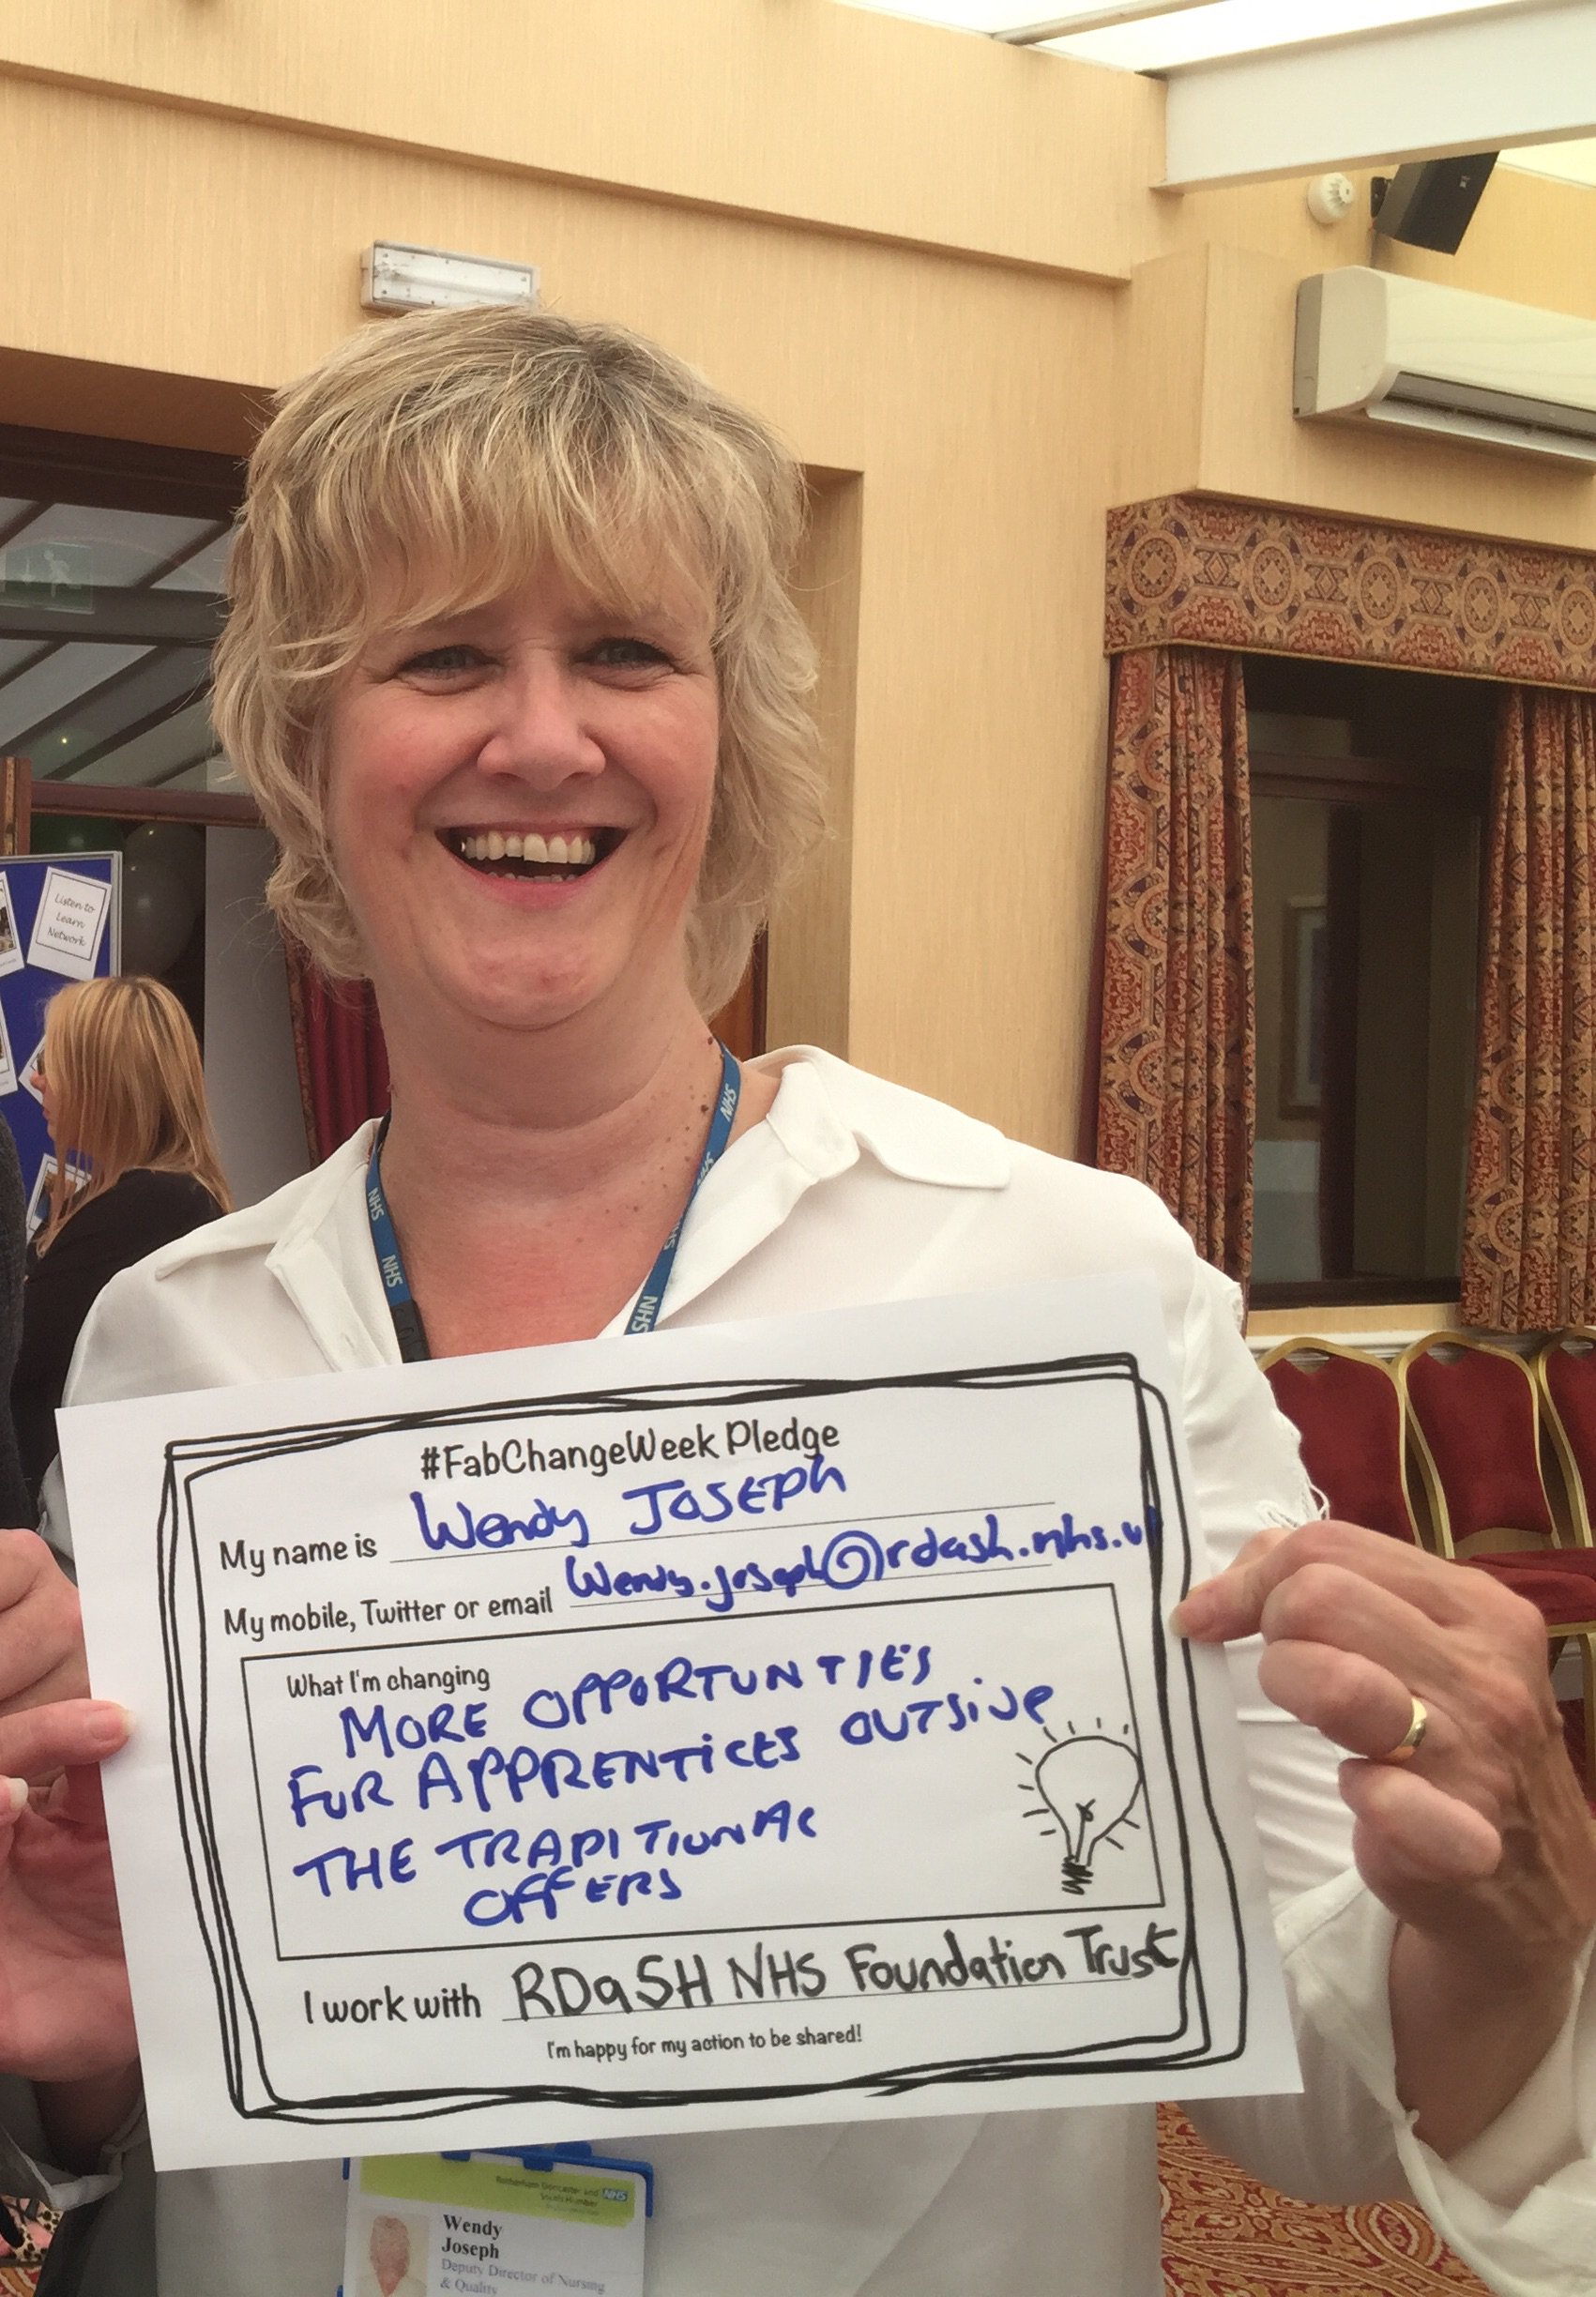 Listen to
Learn
Network
NHS
NHS
NHS
NHS
NHS
NHS
#FabChangeWeek Pledge
My name is Wendy JOSEPH
My mobile, Twitter or email Wendy.joseph@rdash.nhs.u
What I'm changing
MORE OPPORTUNTIES
FOR APPRENTICES OUTSIDE
THE TRADITIONAL
OFFERS
I work with RDaSH NHS Foundation Trust
I'm happy for my action to be shared!
Rotherham Doncaster and NHS
South Humber
Wendy
Joseph
Deputy Director of Nursing
& Quality